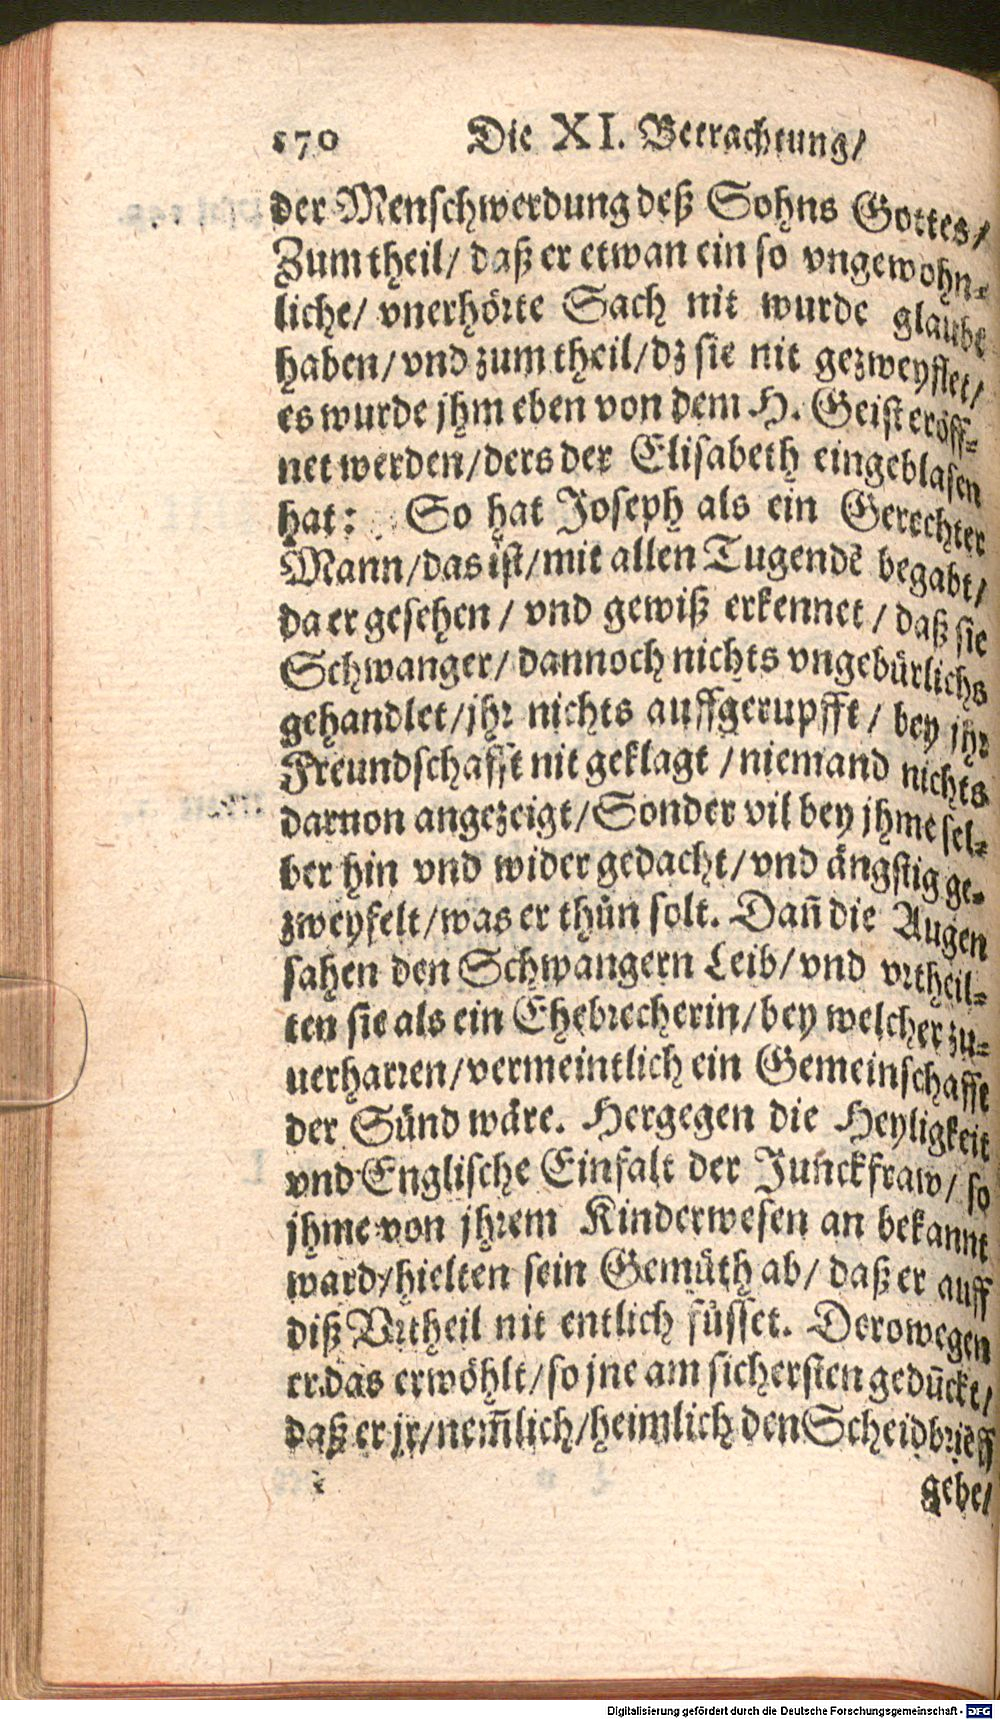 570 Die XI. Betrachtung/
der Menschwerdung deß Sohns Gottes/
Zum theil/ daß er etwan ein so vngewohn-
liche/ vnerhörte Sach nit wurde glaubt
haben/ vnd zum theil/ dz sie nit gezweyflet/
es wurde jhm eben von dem H. Geist eröff-
net werden/ ders der Elisabeth eingeblasen
hat: So hat Joseph als ein Gerechter
Mann/ das ist/ mit allen Tugendē begabt/
da er gesehen/ vnd gewiß erkennet/ daß sie
Schwanger/ dannoch nichts vngebürlichs
gehandlet/ jhr nichts auffgerupfft/ bey jhr
Freundschafft nit geklagt/ niemand nichts
daruon angezeigt/ Sonder vil bey jhme sel-
ber hin vnd wider gedacht/ vnd ängstig ge-
zweyfelt/ was er thůn solt. Dañ die Augen
sahen den Schwangern Leib/ vnd vrtheil-
ten sie als ein Ehebrecherin/ bey welcher zu-
uerharren/ vermeintlich ein Gemeinschafft
der Sünd wäre. Hergegen die Heyligkeit
vnd Englische Einfalt der Junckfraw/ so
jhme von jhrem Kinderwesen an bekannt
ward/ hielten sein Gemüth ab/ daß er auff
diß Vrtheil nit entlich füsset. Derowegen
er das erwöhlt/ so jne am sichersten gedūckt/
daß er jr/ nem̄lich/ heimlich den Scheidbrieff
gebe/
Digitalisierung gefördert durch die Deutsche Forschungsgemeinschaft - DFG